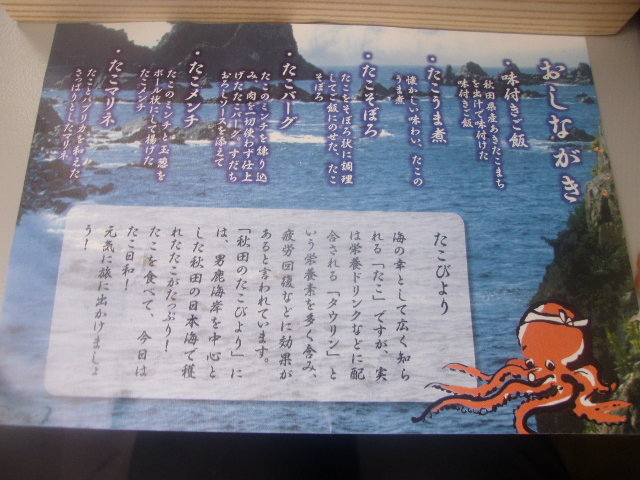 おしながき
・味付きご飯
秋田県産あきたこまち
を出汁で味付けた
味付きご飯
・たこうま煮
懐かしい味わい、たこの
うま煮
・たこそぼろ
たこをそぼろ状に調理
してご飯にのせた、たこ
そぼろ
・たこバーグ
たこのミンチを練り込
み、肉を一切使わず仕上
げたたこバーグ。すだち
おろしソースを添えて
・たこメンチ
たこのミンチと玉葱を
ボール状にして揚げた
たこメンチ
・たこマリネ
たことパプリカを和えた
さっぱりとしたマリネ
たこびより
海の幸として広く知ら
れる「たこ」ですが、実
は栄養ドリンクなどに配
合される「タウリン」と
いう栄養素を多く含み、
疲労回復などに効果が
あると言われています。
「秋田のたこびより」に
は、男鹿海岸を中心と
した秋田の日本海で獲
れたたこがたっぷり!
たこを食べて、今日は
たこ日和!
元気に旅に出かけましょ
う!